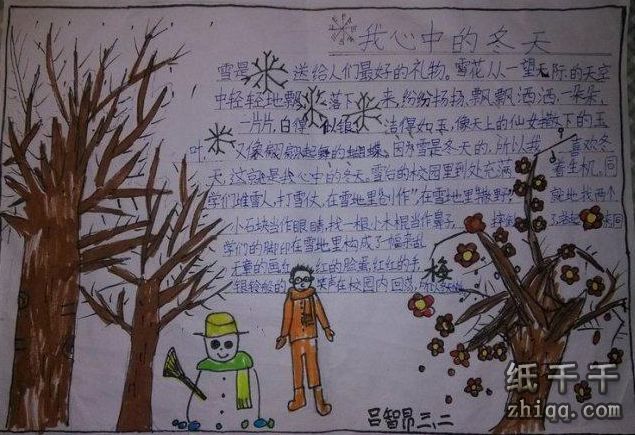 我心中的冬天
雪是 送给人们最好的礼物。雪花从一望无际的天空
中轻轻地飘 落下 来,纷纷扬扬,飘飘洒洒,一朵朵,
一片片,白得 似银 洁得如玉,像天上的仙女撒下的玉
叶, 又像 翩翩起舞的蝴蝶。因为雪是冬天的,所以我 喜欢冬
天,这就是我心中的冬天。雪白的校园里到处充满 着生机。同
学们堆雪人,打雪仗,在雪地里"创作",在雪地里"撒野" 就地找两个
小石块当作眼睛,找一根小木棍当作鼻子,
学们的脚印在雪地里构成了一幅杂乱
无章的画 红 红的脸蛋,红红的手,
银铃般的 笑声在校园内回荡,
梅
吕智昂 三、二
纸千千
zhiqq.com